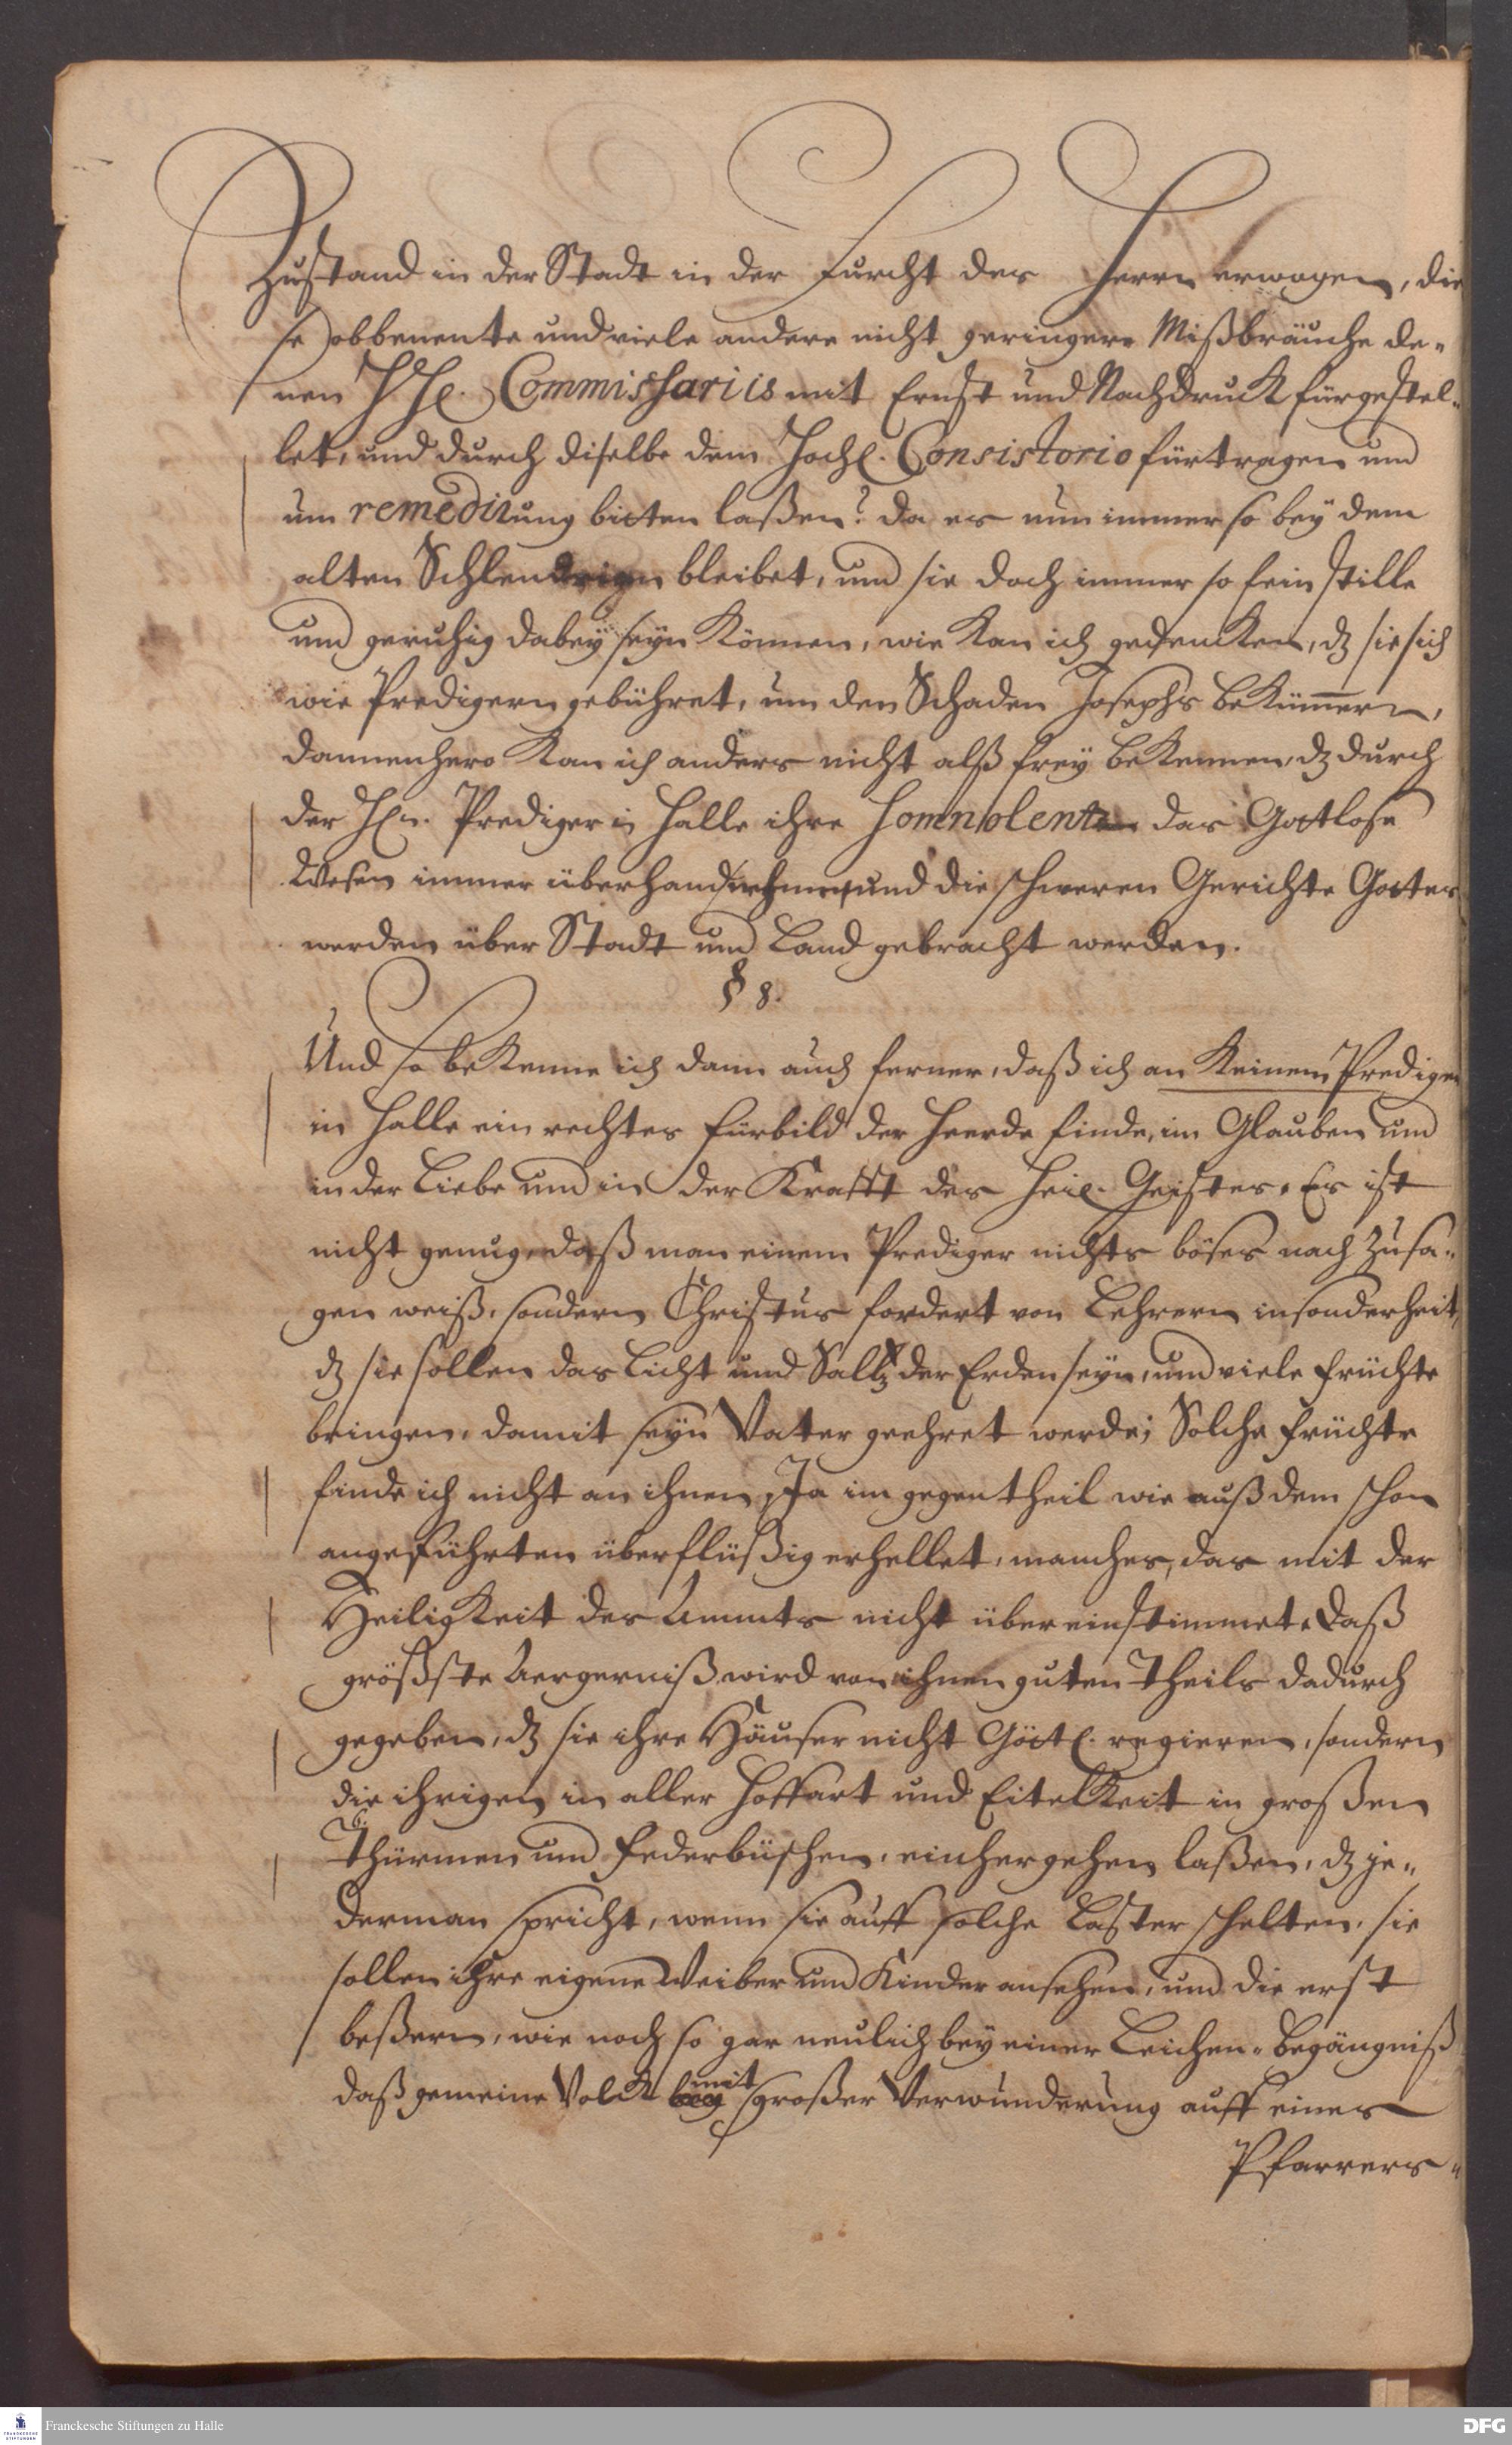 Zustand in der Stadt in der Furcht des Herrn erwogen, die
se obbenente und viele andere nicht geringere Mißbräuche de-
nen HHl. Commissariis mit Ernst und Nachdruck fürgestel-
let, und durch diselbe dem Hochl. Consistorio fürtragen und
um remedirung bitten laßen? da es nun immer so bey dem
alten Schlendrian bleibet, und sie doch immer so fein stille
und geruhig dabey seyn können, wie kan ich gedencken, dz sie sich
wie Predigern gebühret, um den Schaden Josephs bekümmern,
dannenhero kan ich anders nicht alß frey bekennen, dz durch
der Hln. Prediger in Halle ihre Somnolentz das Gottlose
Wesen immer überhand nehme, und die schweren Gerichte Gottes
werden über Stadt und Land gebracht werden.
§ 8.
Und so bekenne ich dann auch ferner, daß ich an keinem Prediger
in Halle ein rechtes fürbild der Heerde finde, im Glauben und
in der Liebe und in der Krafft des Heil. Geistes. Es ist
nicht genug, daß man einem Prediger nichts böses nach zu sa-
gen weiß, sondern Christus fordert von Lehrern insonderheit,
dz sie sollen das Licht und Saltz der Erden seyn, und viele früchte
bringen, damit seyn Vater geehret werde; Solche früchte
finde ich nicht an ihnen, Ja im gegentheil wie auß dem schon
angeführten überflüßig erhellet, manches, das mit der
Heiligkeit des Ammts nicht übereinstimmet. Daß
größste Aergerniß wird von ihnen guten Theils dadurch
gegeben, dz sie ihre Häuser nicht Göttl. regieren, sondern
die ihrigen in aller Hoffart und Eitelkeit in großen
Thürmen und federbüschen, einhergehen laßen, dz je-
derman spricht, wenn sie auff solche Laster schelten, sie
sollen ihre eigene Weiber und Kinder ansehen, und die erst
beßern, wie noch so gar neulich bey einer Leichen-begängniß
daß gemeine Volck mit großer Verwunderung auff eines
Pfarrers-
Franckesche Stiftungen zu Halle
DFG